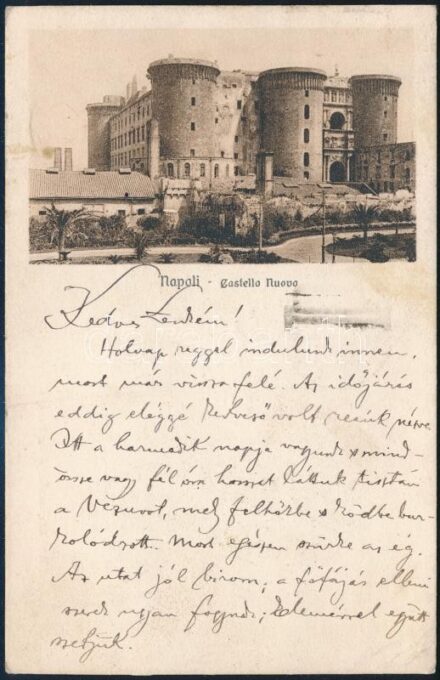 Napoli - Castello Nuovo
Kedves Endrém!
Holnap reggel indulunk innen,
most már vissza felé. Az időjárás
eddig eléggé kedvező volt reánk nézve.
Itt a harmadik napja vagyunk s mind-
össze vagy fél óra hosszat láttuk tisztán
a Vezuvot, mely felhőkbe s ködbe bur-
kolódzott. Most egészen szürke az ég.
Az utat jól birom, a főfájás elleni
szerek ugyan fogynak, Elemérrel együtt
szedjük.